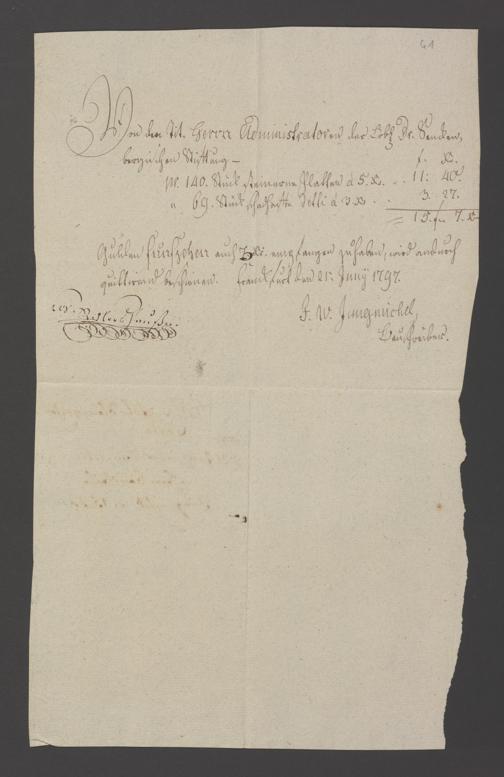 41
Von den Tit. Herrn Administratoren der Löbl. Dr. Sencken-
bergischen Stiftung —
f. Xr.
pr. 140. Stück steinerne Platten á 5. Xr. .. 11: 40.
" 69. Stück schadhafte Detti á 3 Xr. .. 3. 27.
15. f. 7. Xr.
Gulden funfzehen auch 7 Xr. empfangen zu haben, wird andurch
quittirend bescheinet. Franckfurt den 21. Juny 1797.
J. W. Jungmichel,
Bauschreiber.